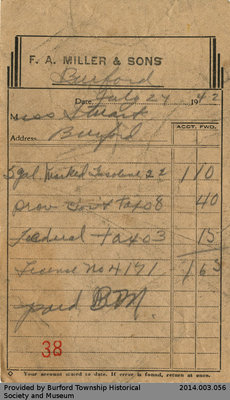 F. A. MILLER & SONS
Burford
Date July 24 1942
Miss Stuart
Address Burford
ACCT. FWD.
5 gal. Marked Gasoline 22 110
Prov Govt Tax 08 40
Federal Tax 03 15
License No 4191 165
paid
38
Your account stated to date. If error is found, return at once.
Provided by Burford Township Historical Society and Museum 2014.003.056